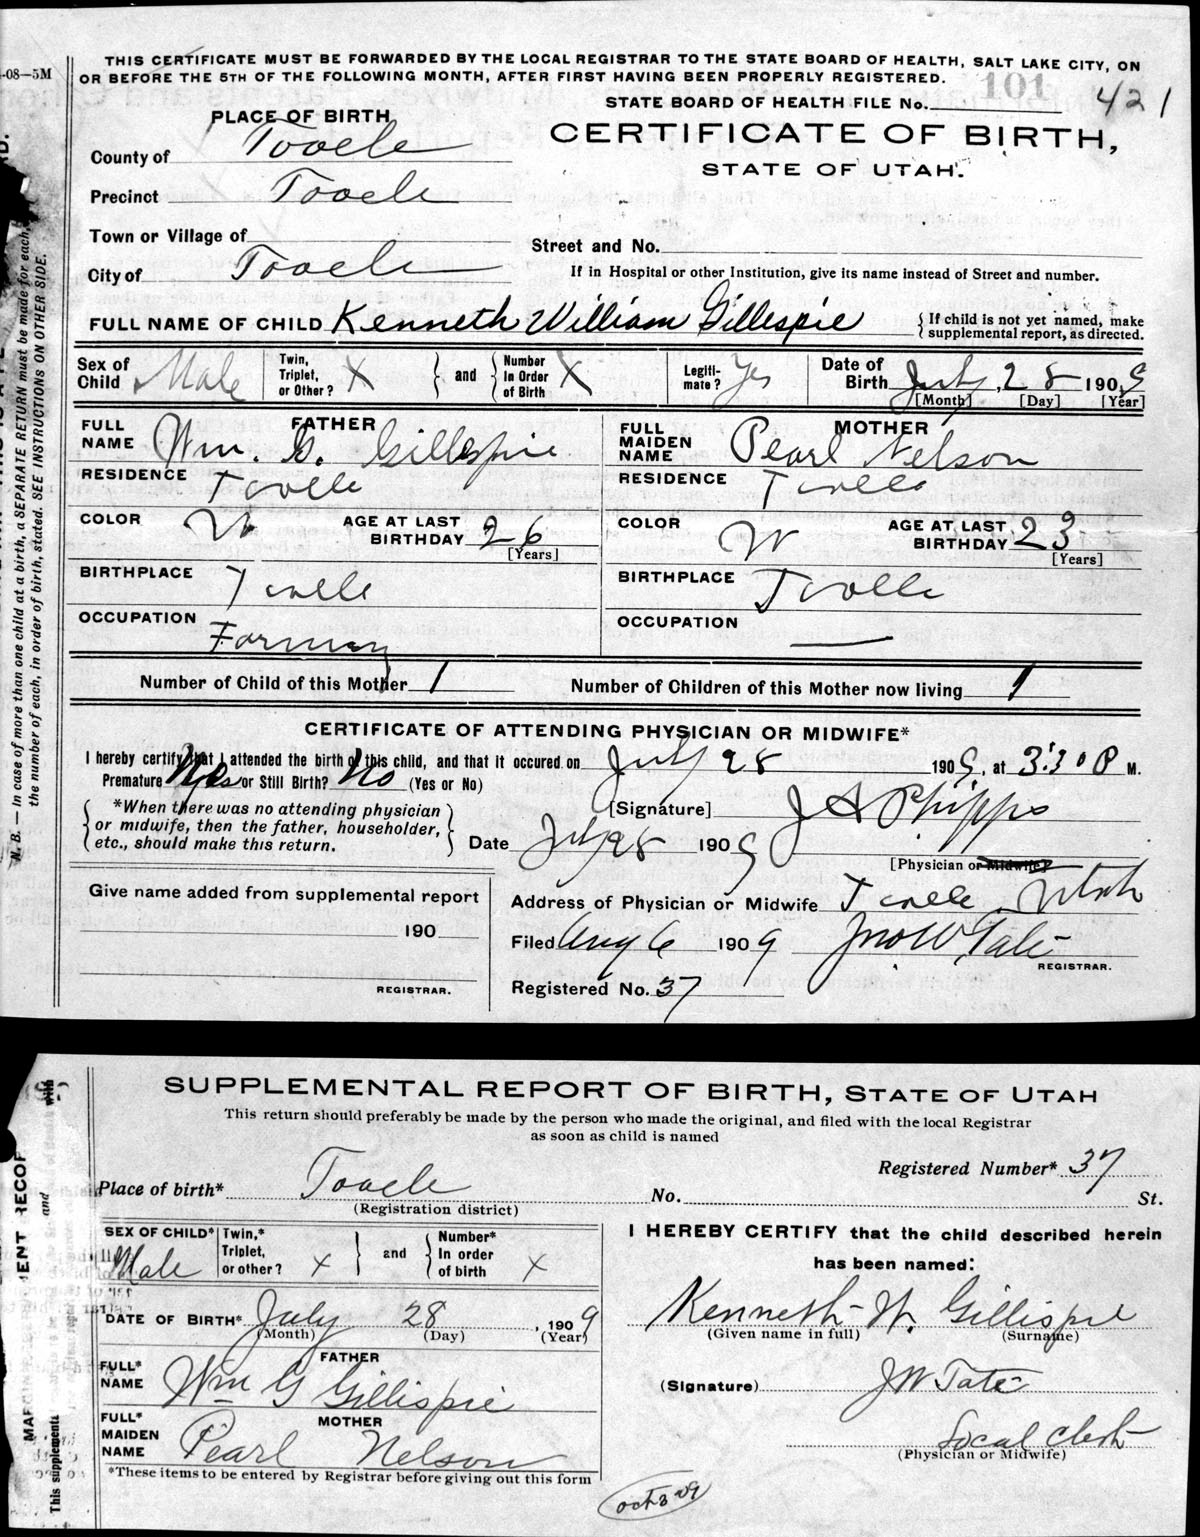 -08—5M
THIS CERTIFICATE MUST BE FORWARDED BY THE LOCAL REGISTRAR TO THE STATE BOARD OF HEALTH, SALT LAKE CITY, ON
OR BEFORE THE 5TH OF THE FOLLOWING MONTH, AFTER FIRST HAVING BEEN PROPERLY REGISTERED.
STATE BOARD OF HEALTH FILE No. 101 421
PLACE OF BIRTH
CERTIFICATE OF BIRTH,
STATE OF UTAH.
County of Tooele
Precinct Tooele
Town or Village of
Street and No.
City of Tooele
If in Hospital or other Institution, give its name instead of Street and number.
FULL NAME OF CHILD Kenneth William Gillespie
{If child is not yet named, make
supplemental report, as directed.
Sex of Child Male
Twin, Triplet, or Other? X
and
Number In Order of Birth X
Legiti-mate? Yes
Date of Birth July, 28 1909
[Month] [Day] [Year]
FATHER
FULL NAME Wm. G. Gillespie
RESIDENCE Tooele
COLOR W
AGE AT LAST BIRTHDAY 26
[Years]
BIRTHPLACE Tooele
OCCUPATION Farming
MOTHER
FULL MAIDEN NAME Pearl Nelson
RESIDENCE Tooele
COLOR W
AGE AT LAST BIRTHDAY 23
[Years]
BIRTHPLACE Tooele
OCCUPATION —
Number of Child of this Mother 1
Number of Children of this Mother now living 1
CERTIFICATE OF ATTENDING PHYSICIAN OR MIDWIFE*
I hereby certify that I attended the birth of this child, and that it occured on July 28 1909, at 3:30 P M.
Premature or Still Birth? No (Yes or No)
*When there was no attending physician
or midwife, then the father, householder,
etc., should make this return.
[Signature] J A Phipps
Date July 28 1909
[Physician or Midwife]
Give name added from supplemental report
190
REGISTRAR.
Address of Physician or Midwife Tooele Utah
Filed Aug 6 1909 Jno W Tate
REGISTRAR.
Registered No. 37
N. B.—In case of more than one child at a birth, a SEPARATE RETURN must be made for each,
the number of each, in order of birth, stated. SEE INSTRUCTIONS ON OTHER SIDE.
SUPPLEMENTAL REPORT OF BIRTH, STATE OF UTAH
This return should preferably be made by the person who made the original, and filed with the local Registrar
as soon as child is named
Registered Number* 37
Place of birth* Tooele
No. St.
(Registration district)
SEX OF CHILD* Male
Twin,* Triplet, or other? X
and
Number* In order of birth X
DATE OF BIRTH* July 28, 1909
(Month) (Day) (Year)
FATHER
FULL* NAME Wm G Gillispie
MOTHER
FULL* MAIDEN NAME Pearl Nelson
*These items to be entered by Registrar before giving out this form
I HEREBY CERTIFY that the child described herein
has been named:
Kenneth W. Gillispie
(Given name in full) (Surname)
(Signature) JW Tate
Local Clerk
(Physician or Midwife)
Oct 3 09
This supplements
and
with